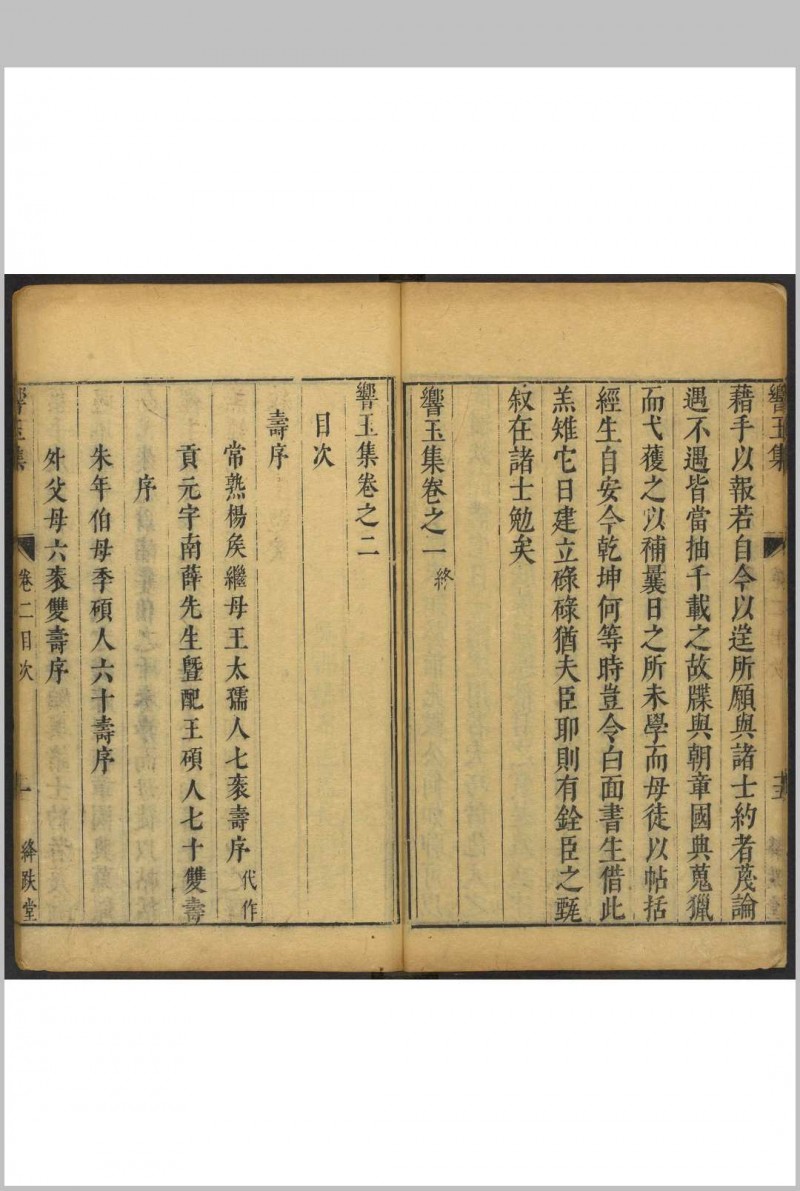 響玉集
藉手以報若自今以𨓏所願與諸士約者蔑論
遇不遇皆當抽千載之故牒與朝章國典蒐獵
而弋獲之以補曩日之所未學而毋徒以帖括
經生自安今乾坤何等時豈令白面書生借此
羔雉它日建立碌碌猶夫臣耶則有銓臣之
叙在諸士勉矣
響玉集卷之一 終
響玉集卷之二
目次
壽序
常熟楊矦繼母王太孺人七袠壽序 代作
貢元宇南薛先生曁配王碩人七十雙壽
序
朱年伯母季碩人六十壽序
外父母六袠雙壽序
響玉集 卷二目次 一 絳趺堂